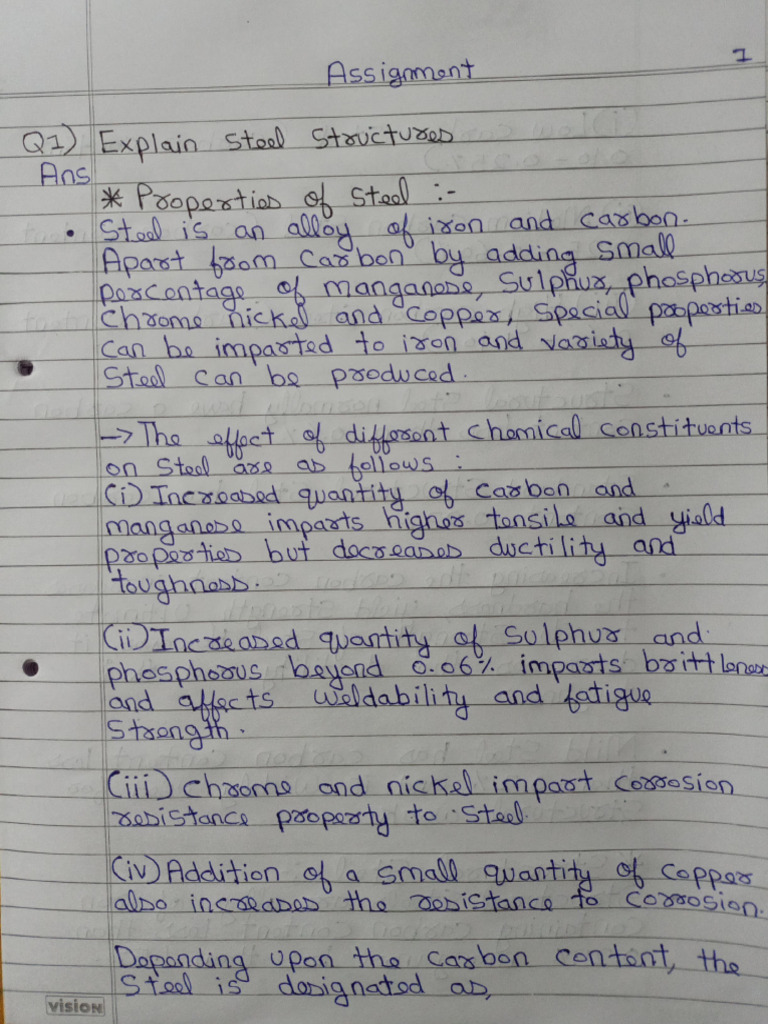 Assignment
1
Q1) Explain Steel Structures
Ans
* Properties of Steel :-
• Steel is an alloy of iron and carbon.
Apart from carbon by adding small
percentage of manganese, Sulphur, phosphorus,
Chrome nickel and copper, special properties
can be imparted to iron and variety of
Steel can be produced.
→ The effect of different chemical constituents
on Steel are as follows :
(i) Increased quantity of carbon and
manganese imparts higher tensile and yield
properties but decreases ductility and
toughness.
(ii) Increased quantity of Sulphur and
phosphorus beyond 0.06% imparts brittleness
and affects weldability and fatigue
Strength.
(iii) Chrome and nickel impart corrosion
resistance property to Steel.
(iv) Addition of a small quantity of copper
also increases the resistance to corrosion.
Depending upon the carbon content, the
Steel is designated as,
VISION